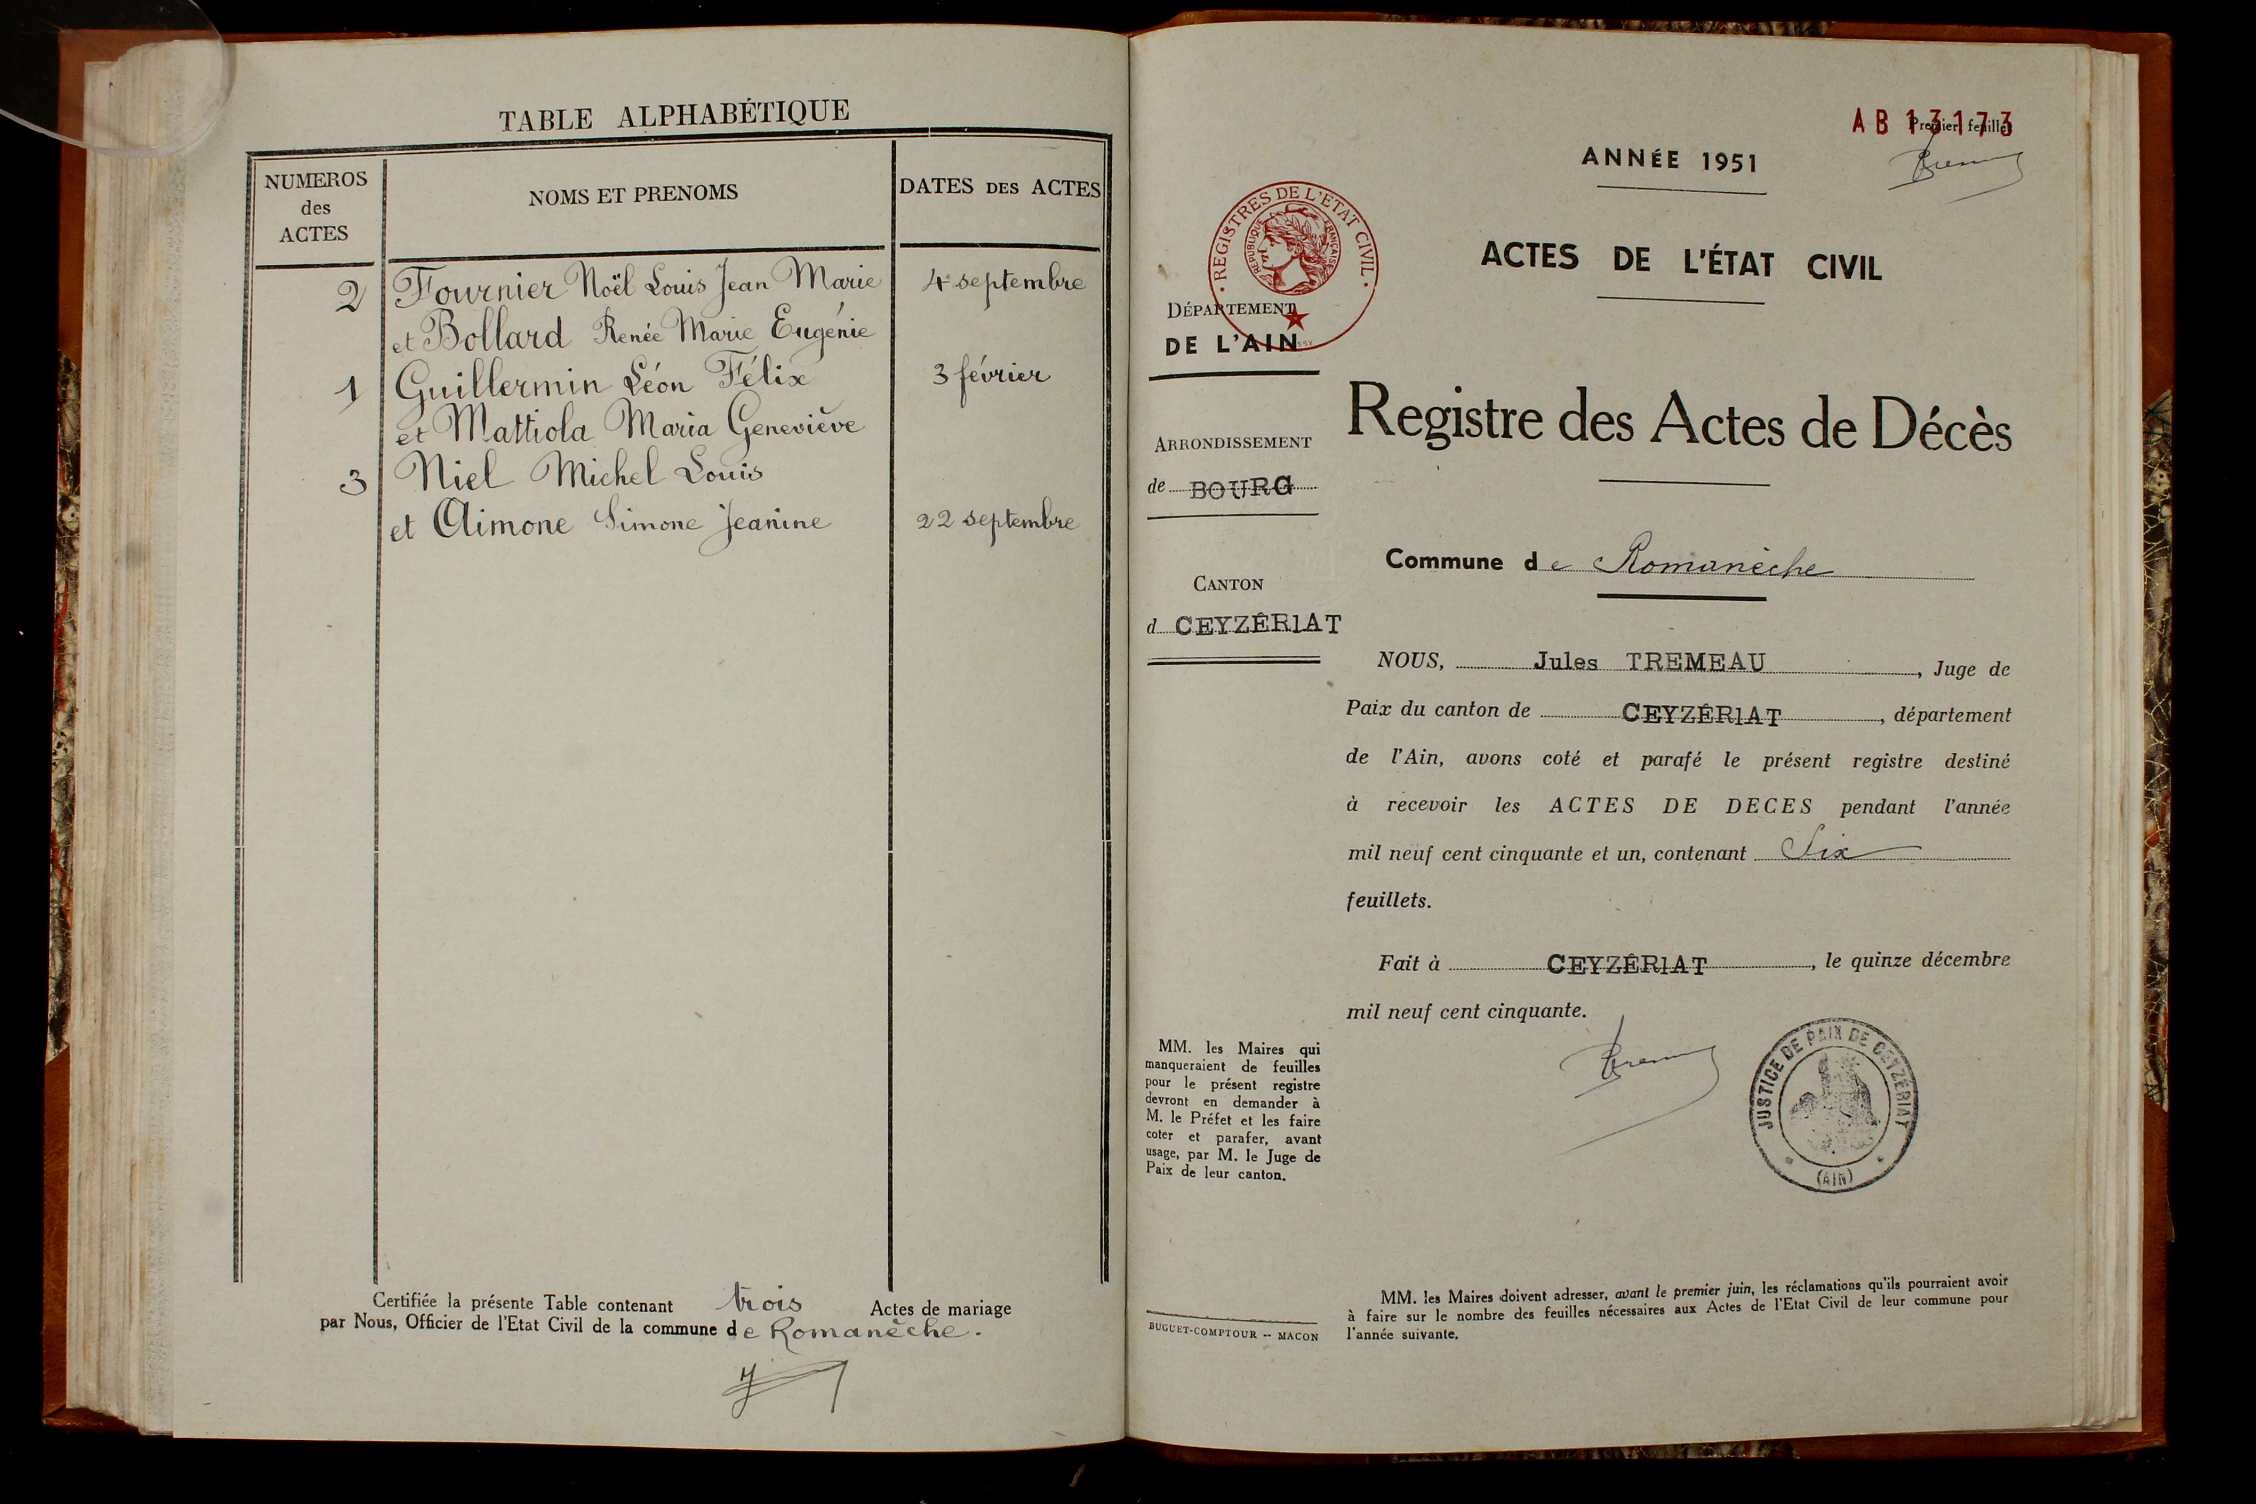 TABLE ALPHABÉTIQUE
NUMEROS
des
ACTES
NOMS ET PRENOMS
DATES DES ACTES
2 Fournier Noël Louis Jean Marie 4 septembre
et Bollard Renée Marie Eugénie
1 Guillermin Léon Félix 3 février
et Mattiola Maria Geneviève
3 Niel Michel Louis
et Aimone Simone Jeanine 22 septembre
Certifiée la présente Table contenant trois Actes de mariage
par Nous, Officier de l'Etat Civil de la commune de Romanèche.
AB 13173
Premier feuillet
ANNÉE 1951
REGISTRES DE L'ETAT CIVIL
REPUBLIQUE FRANÇAISE
ACTES DE L'ÉTAT CIVIL
DÉPARTEMENT
DE L'AIN
Registre des Actes de Décès
ARRONDISSEMENT
de BOURG
Commune de Romanèche
CANTON
d CEYZÊR1AT
NOUS, Jules TREMEAU, Juge de
Paix du canton de CEYZÊR1AT, département
de l'Ain, avons coté et parafé le présent registre destiné
à recevoir les ACTES DE DECES pendant l'année
mil neuf cent cinquante et un, contenant Six
feuillets.
Fait à CEYZÊR1AT, le quinze décembre
mil neuf cent cinquante.
JUSTICE DE PAIX DE CEYZÉRIAT
(AIN)
MM. les Maires qui
manqueraient de feuilles
pour le présent registre
devront en demander à
M. le Préfet et les faire
coter et parafer, avant
usage, par M. le Juge de
Paix de leur canton.
BUGUET-COMPTOUR -- MACON
MM. les Maires doivent adresser, avant le premier juin, les réclamations qu'ils pourraient avoir
à faire sur le nombre des feuilles nécessaires aux Actes de l'Etat Civil de leur commune pour
l'année suivante.